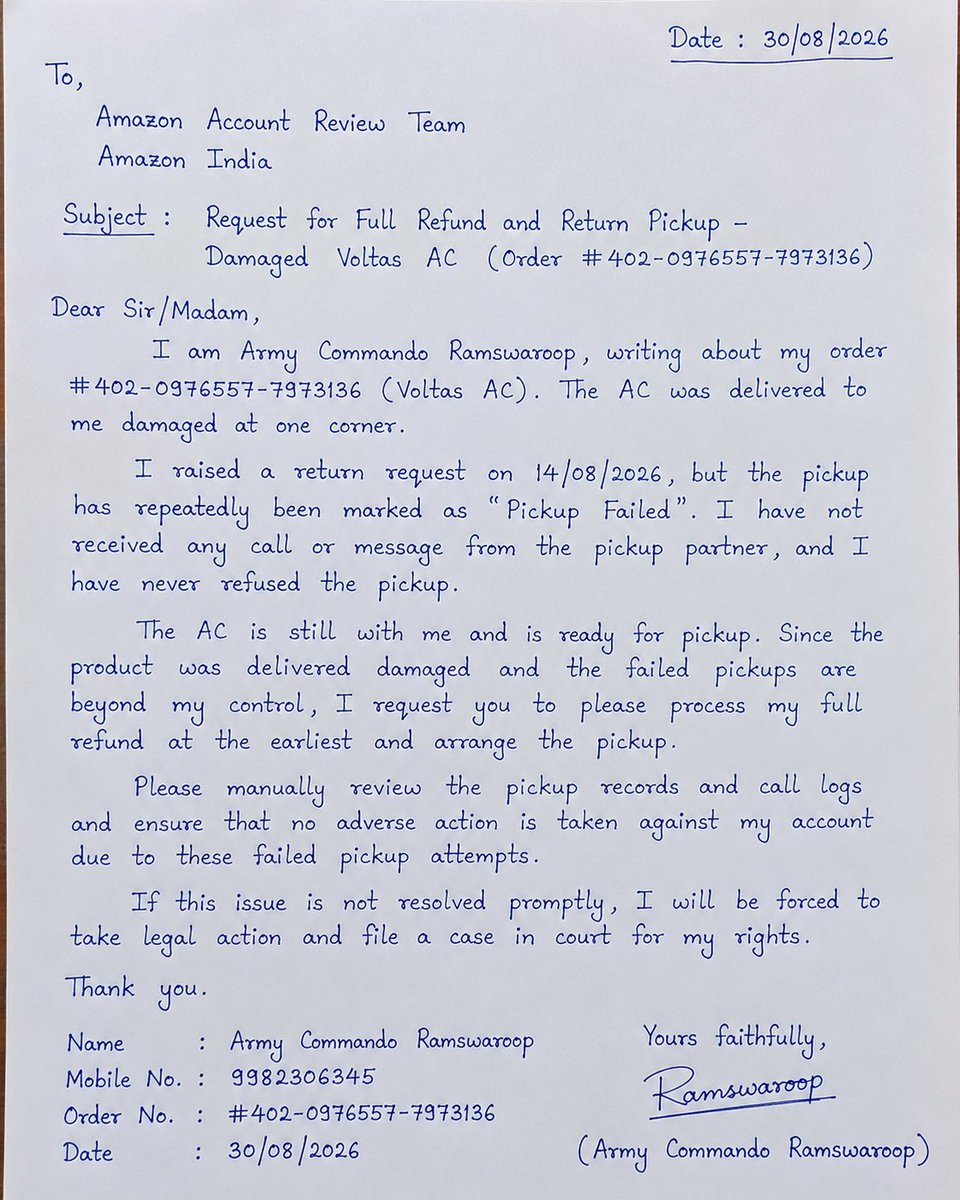 Date : 30/08/2026
To,
Amazon Account Review Team
Amazon India
Subject : Request for Full Refund and Return Pickup –
Damaged Voltas AC (Order #402-0976557-7973136)
Dear Sir/Madam,
I am Army Commando Ramswaroop, writing about my order
#402-0976557-7973136 (Voltas AC). The AC was delivered to
me damaged at one corner.
I raised a return request on 14/08/2026, but the pickup
has repeatedly been marked as “Pickup Failed”. I have not
received any call or message from the pickup partner, and I
have never refused the pickup.
The AC is still with me and is ready for pickup. Since the
product was delivered damaged and the failed pickups are
beyond my control, I request you to please process my full
refund at the earliest and arrange the pickup.
Please manually review the pickup records and call logs
and ensure that no adverse action is taken against my account
due to these failed pickup attempts.
If this issue is not resolved promptly, I will be forced to
take legal action and file a case in court for my rights.
Thank you.
Name : Army Commando Ramswaroop
Mobile No. : 9982306345
Order No. : #402-0976557-7973136
Date : 30/08/2026
Yours faithfully,
Ramswaroop
(Army Commando Ramswaroop)